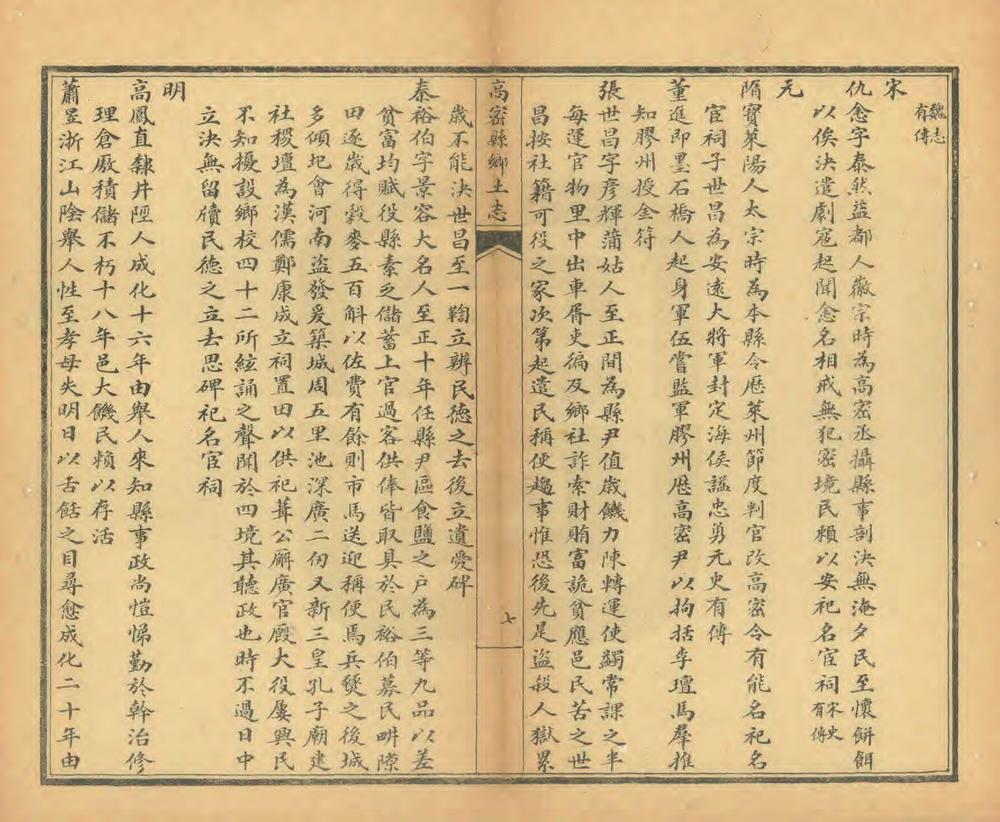 魏志
有傳
宋
仇悆字泰然益都人徽宗時為高密丞攝縣事剖決無淹夕民至懷餅餌
以俟決遣劇寇起聞悆名相戒無犯密境民賴以安祀名宦祠宋史有傳
元
隋寶萊陽人太宗時為本縣令歷萊州節度判官改高密令有能名祀名
宦祠子世昌為安遠大將軍封定海侯諡忠勇元史有傳
董進即墨石橋人起身軍伍嘗監軍膠州歷高密尹以拘括李璮馬羣推
知膠州授金符
張世昌字彥輝蒲姑人至正間為縣尹值歲饑力陳轉運使蠲常課之半
每運官物里中出車胥吏徧及鄉社詐索財賄富詭貧應邑民苦之世
昌按社籍可役之家次第起遣民稱便趨事惟恐後先是盜殺人獄累
高密縣鄉土志
七
歲不能決世昌至一鞫立辨民德之去後立遺愛碑
秦裕伯字景容大名人至正十年任縣尹區食鹽之戶為三等九品以差
貧富均賦役縣素乏儲蓄上官過客供俸皆取具於民裕伯募民畊隙
田逐歲得穀麥五百斛以佐費有餘則市馬送迎稱便馬兵燹之後城
多傾圮會河南盜發爰築城周五里池深廣二仞又新三皇孔子廟建
社稷壇為漢儒鄭康成立祠置田以供祀葺公廨廣官廄大役屢興民
不知擾設鄉校四十二所絃誦之聲聞於四境其聽政也時不過日中
立決無留牘民德之立去思碑祀名宦祠
明
高鳳直隸井陘人成化十六年由舉人來知縣事政尚愷悌勤於幹治修
理倉廒積儲不朽十八年邑大饑民賴以存活
蕭昱浙江山陰舉人性至孝母失明日以舌餂之目尋愈成化二十年由